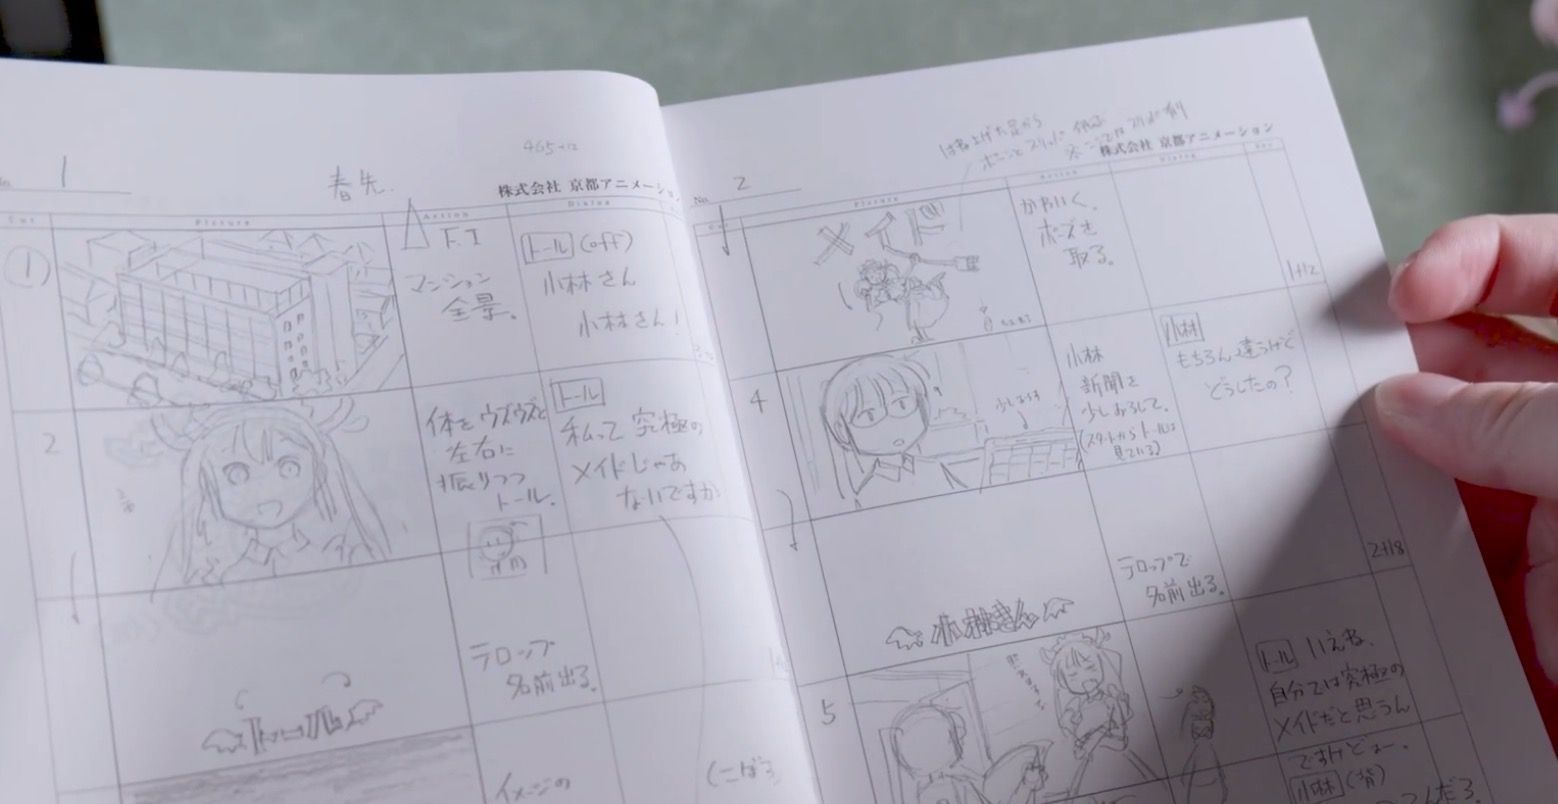 No. 1
春先.
465+12
株式会社 京都アニメーション
Cut
Picture
Action
Dialog
①
F.I
マンション
全景。
トール (off)
小林さん
小林さん!
2
体をウズウズと
左右に
振りつつ
トール.
トール
私って究極の
メイドじゃあ
ないですか
テロップ
名前出る。
トール
イメージの
(こぼう
No. 2
はね上げた足から
株式会社 京都アニメーション
Picture
Action
Dialog
メイド
かわいく。
ポーズを
取る。
1+12
4
小林
新聞を
少しおろして。
(スタートからトールは
見ている)
小林
もちろん違うけど
どうしたの?
小林さん
テロップで
名前出る。
2+18
5
トール いえね、
自分では究極の
メイドだと思うん
ですけどぉー.
小林 (背)